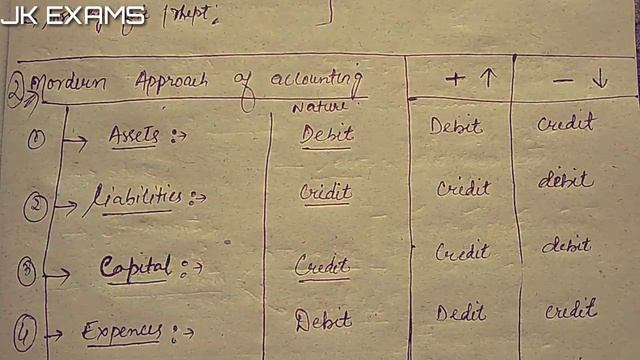 JK EXAMS
② Mordern Approach of accounting + ↑ - ↓
Nature
① → Assets :→ Debit Debit Credit
② → Liabilities :→ Cridit Cridit debit
③ → Capital :→ Credit Credit debit
④ → Expences :→ Debit Dedit Credit